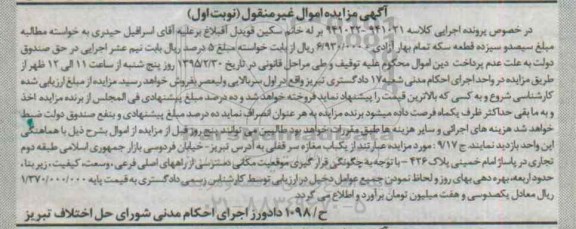 آگهی مزایده اموال غیرمنقول (نوبت اول)
در خصوص پرونده اجرایی کلاسه ۹۴۱۰۲۱-۹۴۱۰۲۲ بر له خانم سکین قویدل آقبلاغ برعلیه آقای اسرافیل حیدری به خواسته مطالبه
مبلغ سیصدو سیزده قطعه سکه تمام بهار آزادی و ۶/۹۳۰/۰۰۰ ریال از بابت خواسته/مبلغ ۵ درصد ریال بابت نیم عشر اجرایی در حق صندوق
دولت به علت عدم پرداخت دین اموال محکوم علیه توقیف و طی مراحل قانونی در تاریخ ۱۳۹۵/۲/۳۰ روز پنج شنبه از ساعت ۱۱ الی ۱۲ ظهر از
طریق مزایده در واحد اجرای احکام مدنی شعبه ۱۷ دادگستری تبریز واقع در اول سربالایی ولیعصر بفروش خواهد رسید. مزایده از مبلغ ارزیابی شده
کارشناسی شروع و به کسی که بالاترین قیمت را پیشنهاد نماید فروخته خواهد شد و ده درصد مبلغ پیشنهادی فی المجلس از برنده مزایده اخذ
و به ما بقی حداکثر ظرف یکماه فرصت داده میشود برنده مزایده به هر عنوان انصراف نماید ده درصد مبلغ پیشنهادی و بنفع صندوق دولت ضبط
خواهد شد هزینه های اجرائی و سایر هزینه ها طبق مقررات خواهد بود طالبین می توانند پنج روز قبل از مزایده از اموال بشرح ذیل با هماهنگی
این واحد بازدید نمایند. ج ۹/۱۷ : مورد مزایده عبارتند از یکباب مغازه سرقفلی به آدرس تبریز- خیابان فردوسی بازار جمهوری اسلامی طبقه دوم
تجاری در پاساژ امام خمینی پلاک ۴۲۶ – با توجه به چگونگی قرار گیری موقعیت مکانی دسترسی از راههای اصلی فرعی، وسعت، کیفیت، زیر بنا،
حدود اربعه، بهره دهی بهای روز و لحاظ نمودن جمیع عوامل دخیل در ارزیابی توسط کارشناس رسمی دادگستری به قیمت پایه ۱/۳۷۰/۰۰۰/۰۰۰
ریال معادل یکصدوسی و هفت میلیون تومان برآورد و اطلاع می گردد.
ح/۱۰۹۸ دادورز اجرای احکام مدنی شورای حل اختلاف تبریز